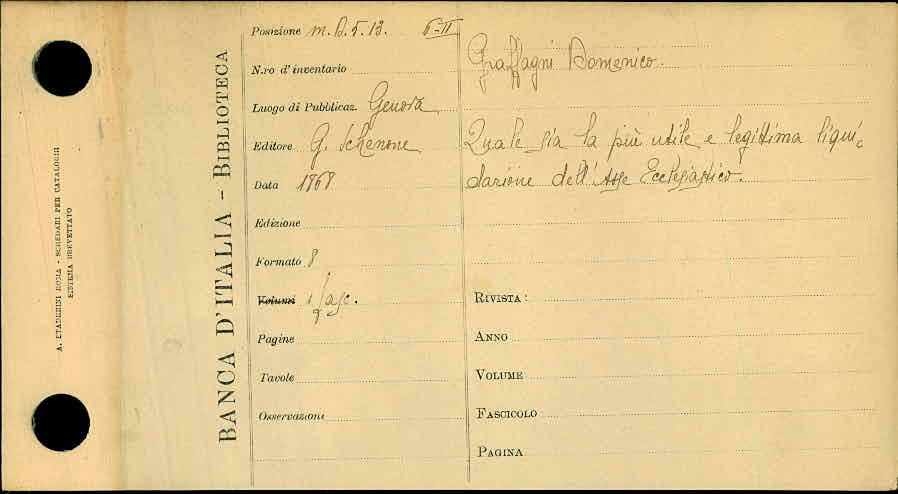 A. STADERINI ROMA - SCHEDARI PER CATALOGHI
SISTEMA BREVETTATO
BANCA D'ITALIA - BIBLIOTECA
Posizione m.B.5.13. 6-II
N.ro d'inventario
Luogo di Pubblicaz. Genova
Editore G. Schenone
Data 1868
Edizione
Formato 8
Volumi 1 fasc.
Pagine
Tavole
Osservazioni
Graffagni Domenico.
Quale sia la più utile e legittima liqui-
dazione dell'Asse Ecclesiastico.
RIVISTA:
ANNO
VOLUME
FASCICOLO
PAGINA